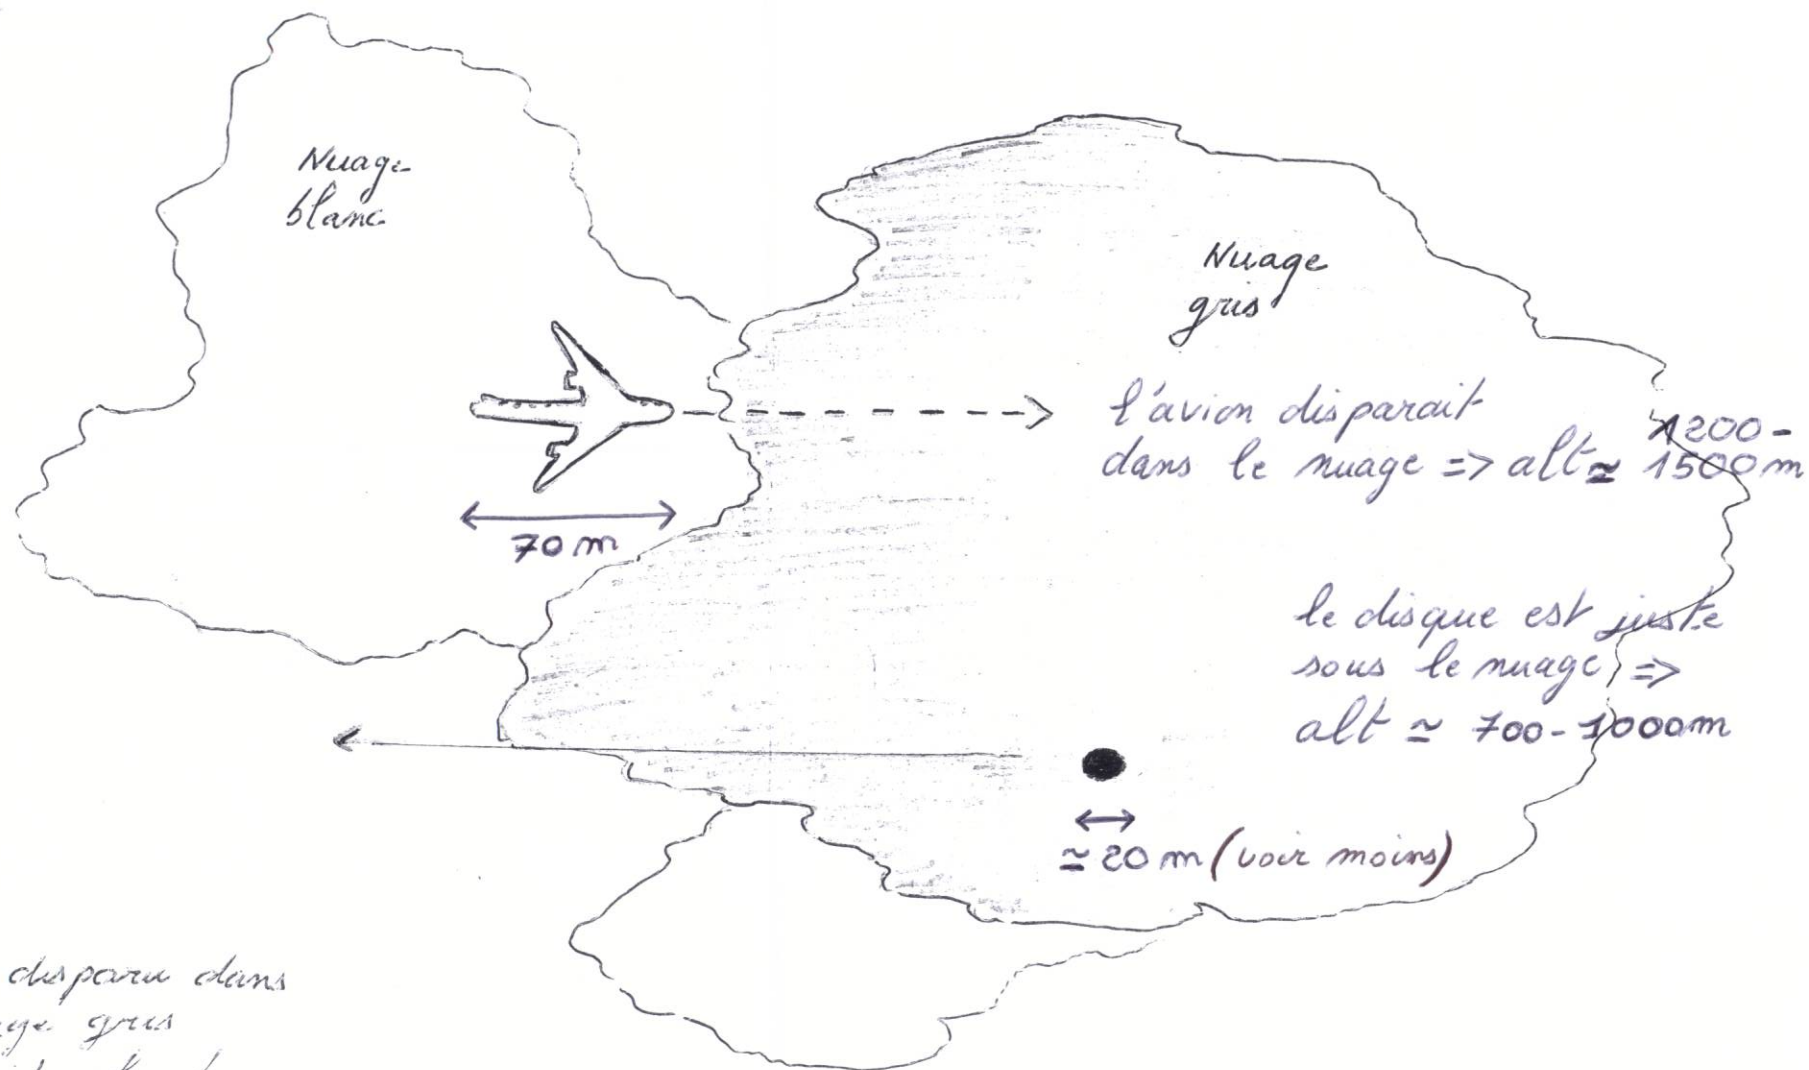 Nuage
blanc
Nuage
gris
l'avion disparait
dans le nuage => alt ≃ 1200-1500m
70 m
le disque est juste
sous le nuage =>
alt ≃ 700-1000m
≃ 20 m (voir moins)
disparu dans
gris